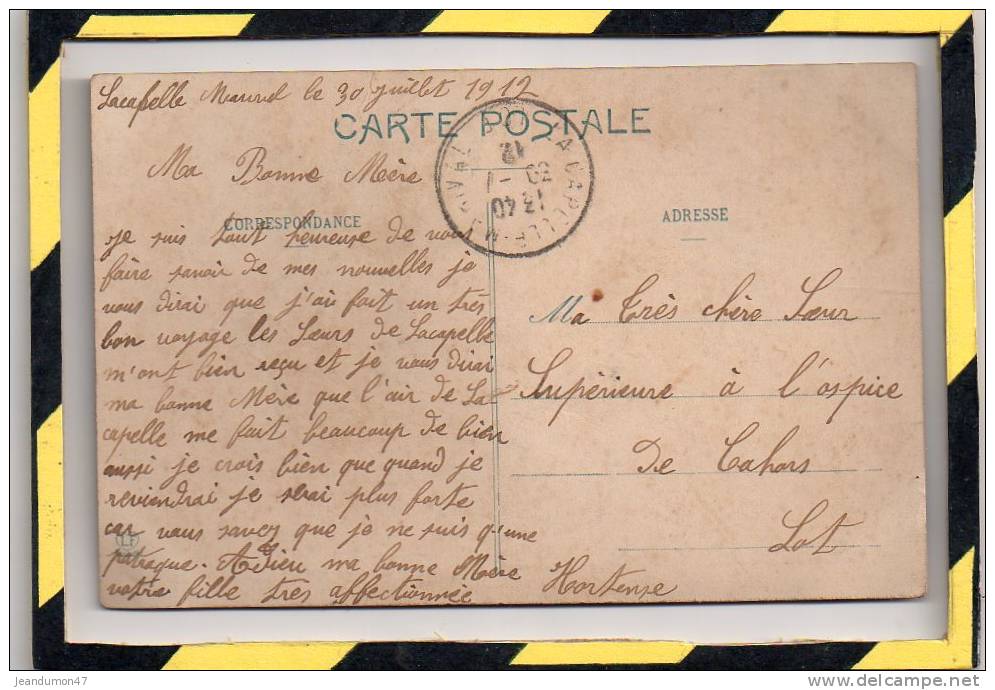 Lacapelle Marival le 30 juillet 1912
CARTE POSTALE
Ma Bonne Mère
CORRESPONDANCE
je suis tout heureuse de vous
faire savoir de mes nouvelles je
vous dirai que j'ai fait un très
bon voyage les Sœurs de Lacapelle
m'ont bien reçu et je vous dirai
ma bonne Mère que l'air de La
capelle me fait beaucoup de bien
aussi je crois bien que quand je
reviendrai je serai plus forte
car vous savez que je ne suis q'une
patraque. Adieu ma bonne Mère
votre fille très affectionnée Hortense
LACAPELLE-M
LOT
13 40
30 - 
12
ADRESSE
Ma Très chère Sœur
Supérieure à l'ospice
De Cahors
Lot
jeandumon47
delcampe.net